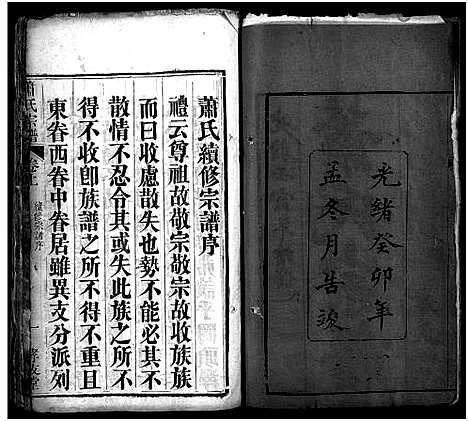 光緒癸卯年
孟冬月告竣
蕭氏續修宗譜序
禮云尊祖故敬宗敬宗故收族族
而曰收慮散失也勢不能必其不
散情不忍令其或失此族之所不
得不收卽族譜之所不得不重且
東眷西眷中眷居雖異支分派列
蕭氏宗譜
續修宗譜序
一